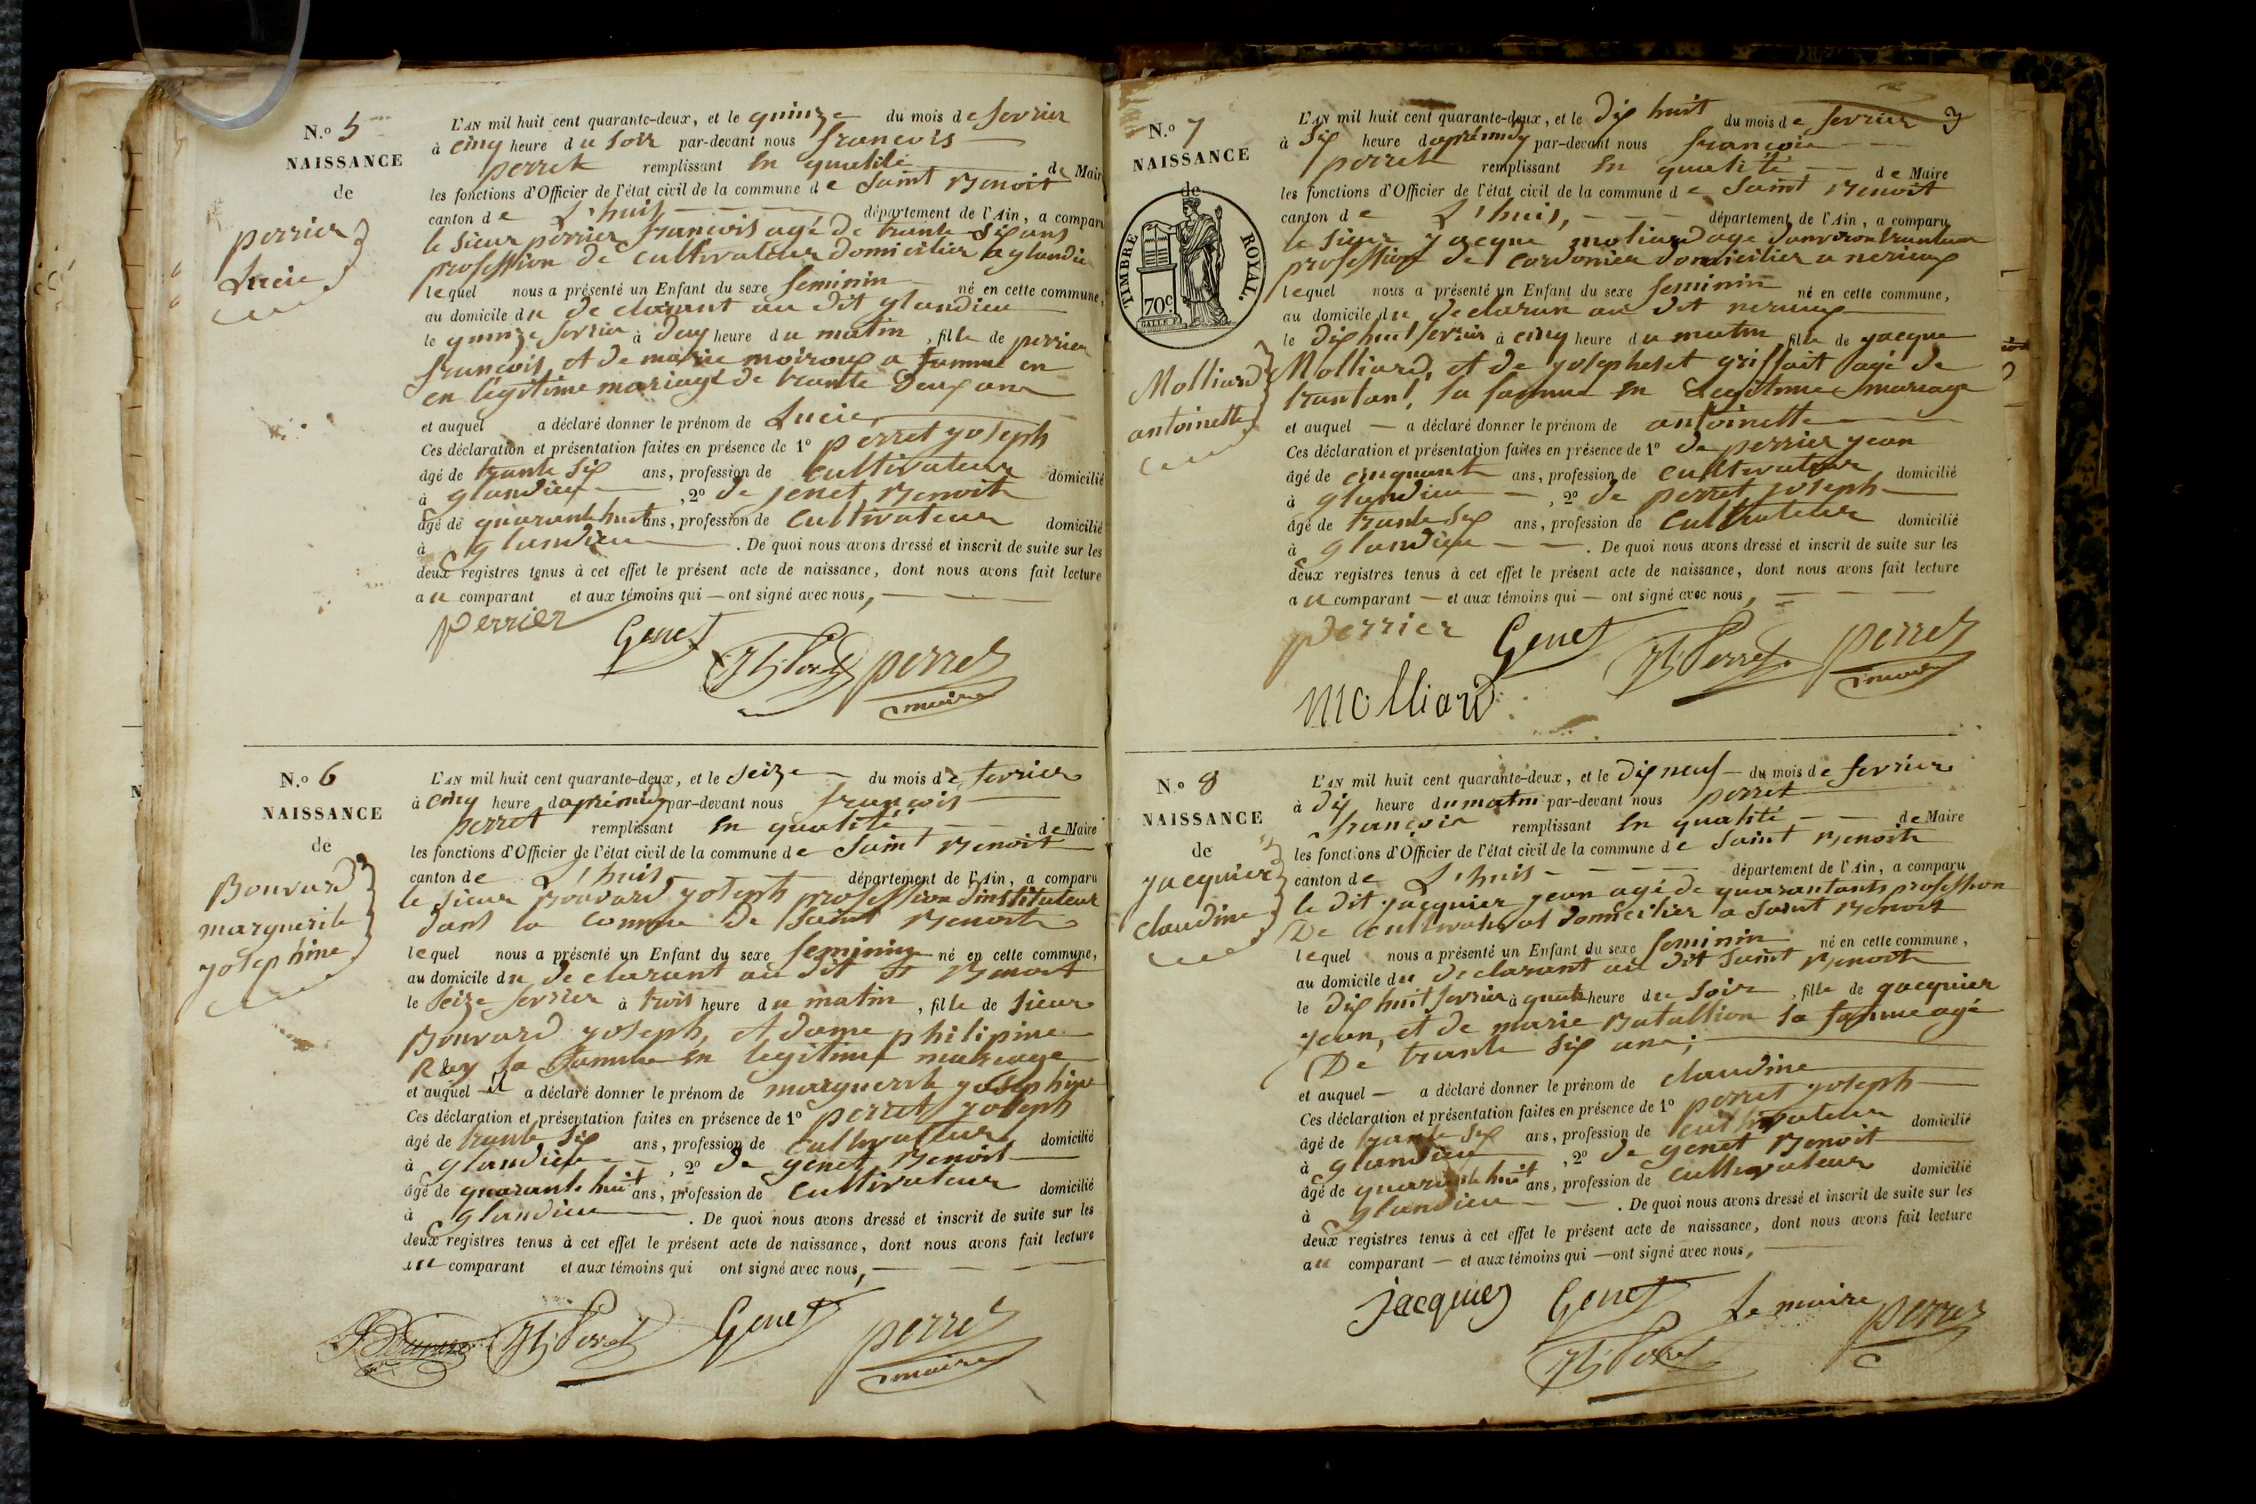 N.o 5
NAISSANCE
de
perrier
Lucie
L'AN mil huit cent quarante-deux, et le quinze du mois de fevrier
à cinq heure du soir par-devant nous francois
perret remplissant en qualité de Mair
les fonctions d'Officier de l'état civil de la commune de saint Benoit
canton de L'huis département de l'Ain, a comparu
le sieur perrier francois agé de trante six ans
profession de cultivateur domicilier a glandie
lequel nous a présenté un Enfant du sexe feminin né en cette commune,
au domicile du declarant au dit glandieu
le quinze fevrier à deux heure du matin, fille de perrier
francois, et de marie moiroux a famme en
en légitime mariage de trante deux ans
et auquel a déclaré donner le prénom de Lucie
Ces déclaration et présentation faites en présence de 1º perret yoseph
âgé de trante six ans, profession de cultivateur domicilié
à glandieu, 2º de jenet Benoit
âgé de quarante huit ans, profession de cultivateur domicilié
à glandieu. De quoi nous avons dressé et inscrit de suite sur les
deux registres tenus à cet effet le présent acte de naissance, dont nous avons fait lecture
au comparant et aux témoins qui — ont signé avec nous,
perrier Genet Jh Perret perret
maire
N.o 6
NAISSANCE
de
Bouvard
marguerite
yosephine
L'AN mil huit cent quarante-deux, et le seize du mois de fevrier
à cinq heure daprémidy par-devant nous françois
perret remplissant en qualité de Maire
les fonctions d'Officier de l'état civil de la commune de saint Benoit
canton de L'huis département de l'Ain, a comparu
le sieur Bouvard yoseph profession dinstituteur
dans la comune de saint Benoit
lequel nous a présenté un Enfant du sexe feminin né en cette commune,
au domicile du declarant au dit st Benoit
le seize fevrier à trois heure du matin, fille de sieur
Bouvard yoseph, et dame philipine
Rey sa famme en legitime mariage
et auquel il a déclaré donner le prénom de marguerite yosephine
Ces déclaration et présentation faites en présence de 1º perret yoseph
âgé de trante six ans, profession de cultivateur domicilié
à glandieu, 2º de genet Benoit
âgé de quarante huit ans, profession de cultivateur domicilié
à glandieu. De quoi nous avons dressé et inscrit de suite sur les
deux registres tenus à cet effet le présent acte de naissance, dont nous avons fait lecture
au comparant et aux témoins qui ont signé avec nous,
Bouvard Jh Perret Genet perret
maire
3
N.o 7
NAISSANCE
de
TIMBRE ROYAL.
70c.
Molliard
antoinette
L'AN mil huit cent quarante-deux, et le dix huit du mois de fevrier
à six heure daprémidy par-devant nous françois
perret remplissant en qualité de Maire
les fonctions d'Officier de l'état civil de la commune de saint Benoit
canton de L'huis, département de l'Ain, a comparu
le sieur yacque moliard age danviron
profession de cordonier domicilier a nerieux
lequel nous a présenté un Enfant du sexe feminin né en cette commune,
au domicile du declaran au dit nerieux
le dix huit fevrier à cinq heure du matin fille de yacque
Molliard, et de yosephetet griffait agé de
trantant, sa famme en Legitime mariage
et auquel — a déclaré donner le prénom de antoinette
Ces déclaration et présentation faites en présence de 1º de perrier yean
âgé de cinquante ans, profession de cultivateur domicilié
à glandieu, 2º de perret yoseph
âgé de trante six ans, profession de cultivateur domicilié
à glandieu. De quoi nous avons dressé et inscrit de suite sur les
deux registres tenus à cet effet le présent acte de naissance, dont nous avons fait lecture
au comparant — et aux témoins qui — ont signé avec nous,
perrier Genet Jh Perret perret
maire
molliard
N.o 8
NAISSANCE
de
yacquier
claudine
L'AN mil huit cent quarante-deux, et le dix neuf — du mois de fevrier
à dix heure du matin par-devant nous perret
françois remplissant en qualité de Maire
les fonctions d'Officier de l'état civil de la commune de saint Benoit
canton de L'huis département de l'Ain, a comparu
le dit yacquier yean agé de quarantants profession
De cultivateur domicilier a saint Benoit
lequel nous a présenté un Enfant du sexe feminin né en cette commune,
au domicile du declarant au dit saint Benoit
le dix huit fevrier à quatre heure du soir, fille de yacquier
yean, et de marie Batallion sa famme agé
De trante six ans;
et auquel — a déclaré donner le prénom de claudine
Ces déclaration et présentation faites en présence de 1º perret yoseph
âgé de trante six ans, profession de cultivateur domicilié
à glandieu, 2º de genet Benoit
âgé de quarante huit ans, profession de cultivateur domicilié
à glandieu. De quoi nous avons dressé et inscrit de suite sur les
deux registres tenus à cet effet le présent acte de naissance, dont nous avons fait lecture
au comparant — et aux témoins qui — ont signé avec nous,
jacquier Genet Le maire perret
Jh Perret